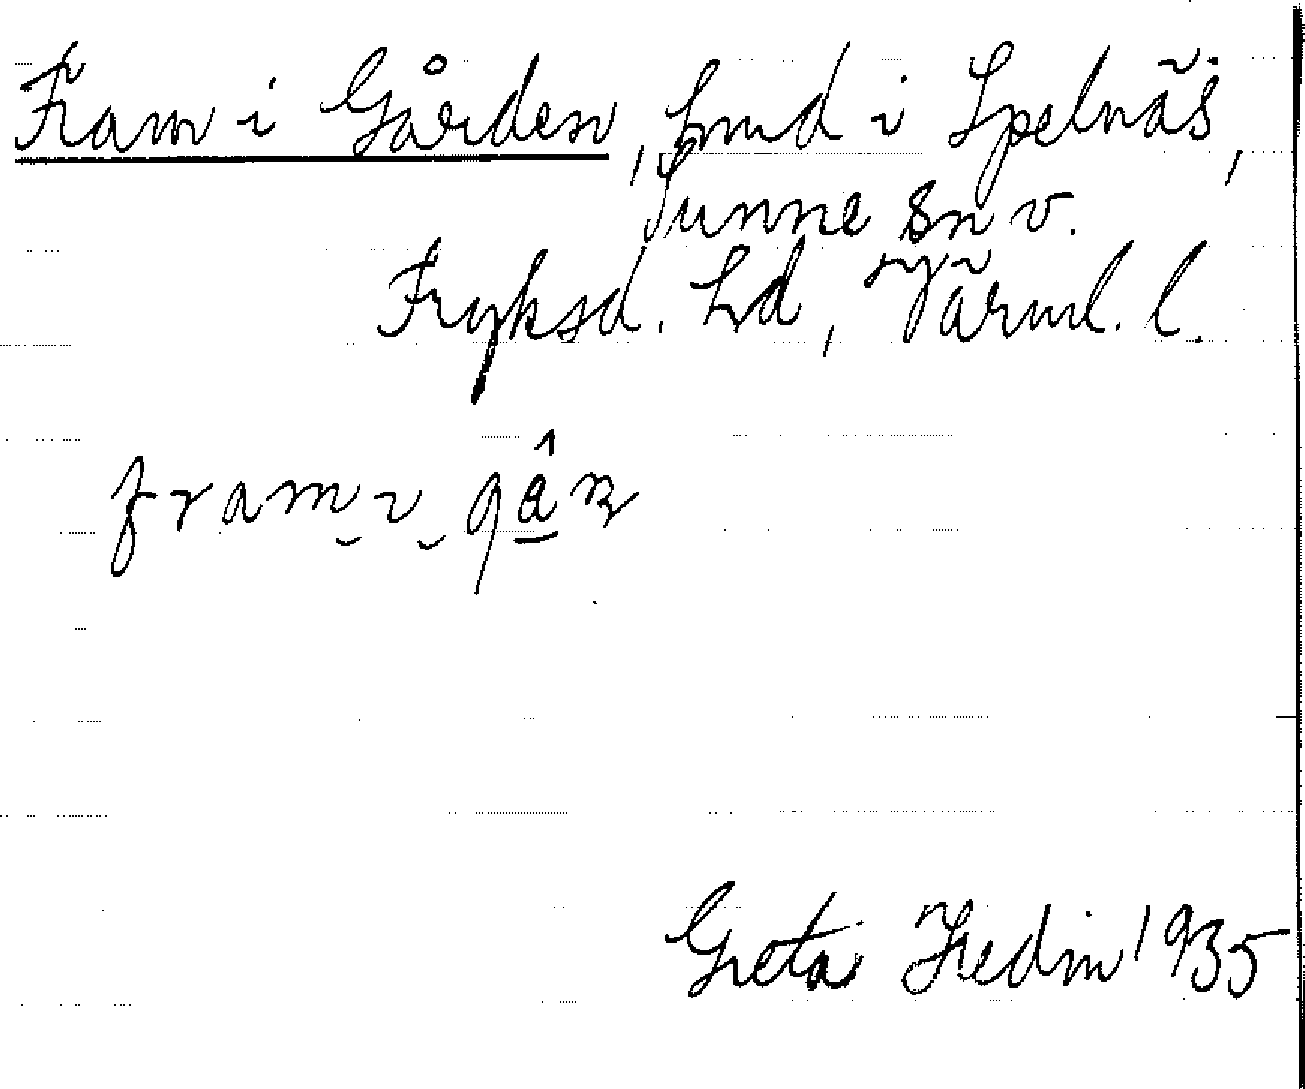 Fram i Gården, hmd i Spelnäs,
Sunne sn v.
Fryksd. hd, Värml. l.
Greta Hedin 1935